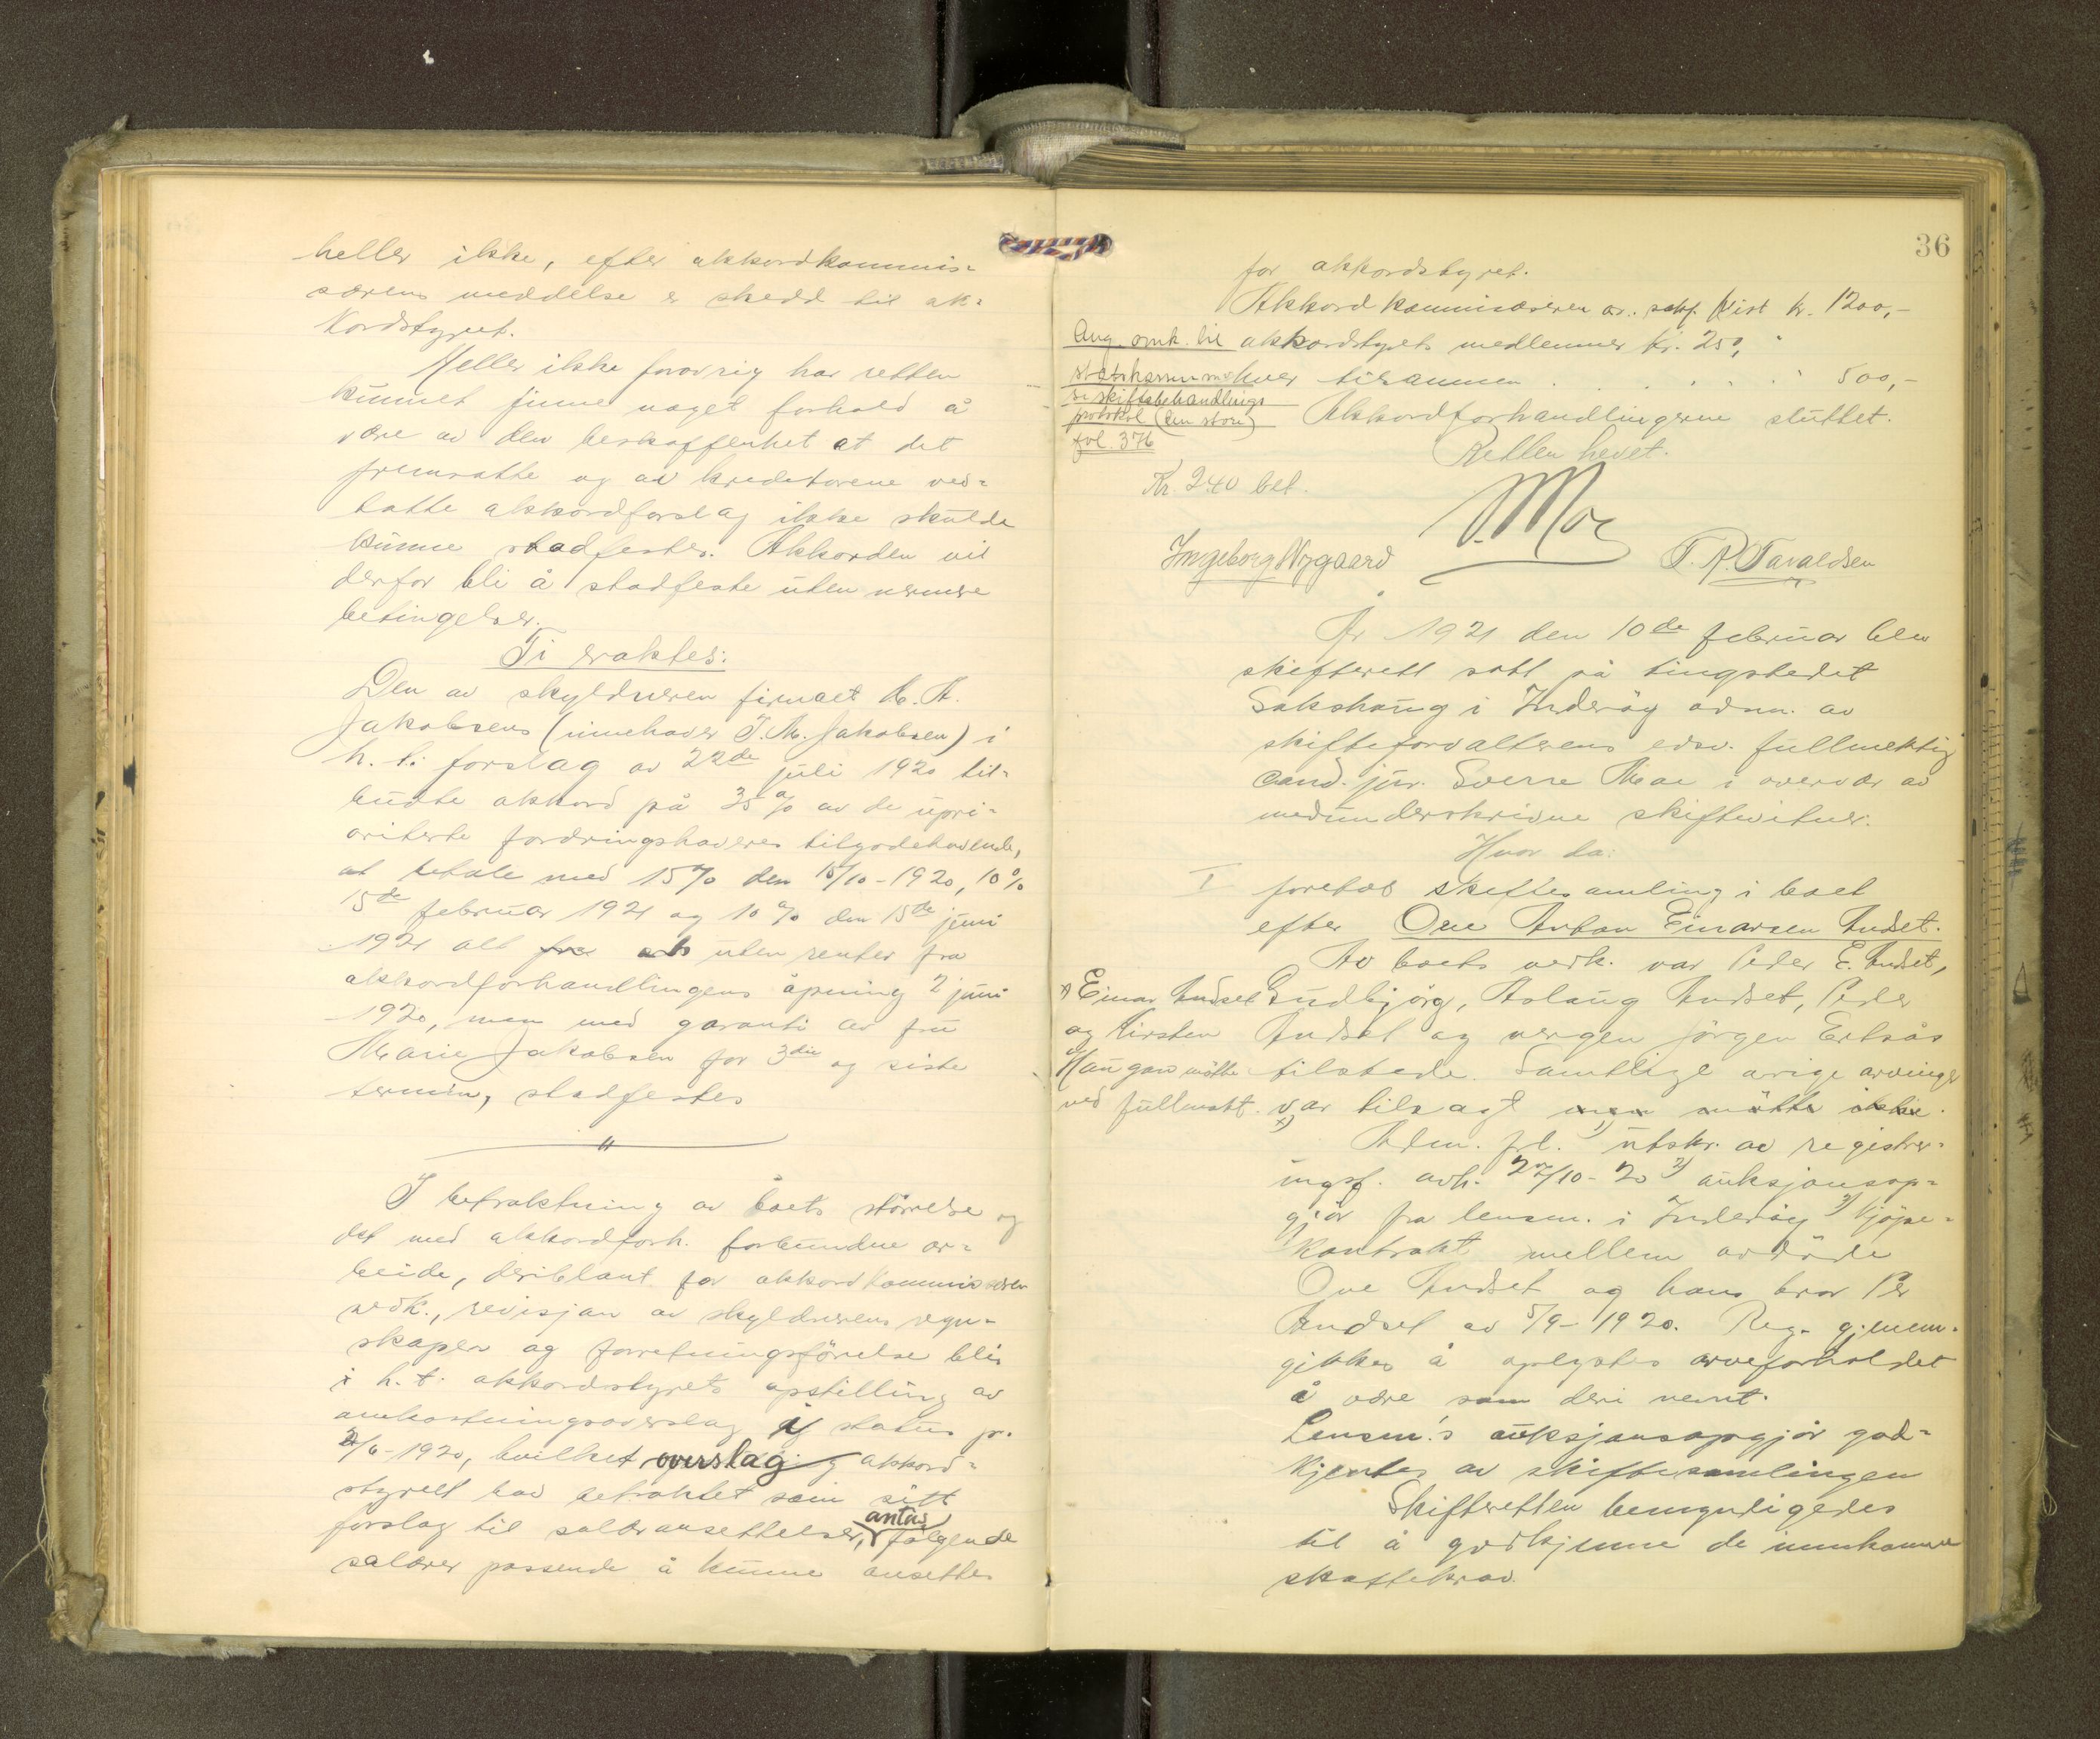 heller ikke, efter akkordkommis=
særens meddelse er skedd til ak=
kordstyret.
Heller ikke forøvrig har retten
kunnet finne noget forhold å
være av den beskaffenhet at det
fremsatte og av kreditorene ved=
tatte akkordforslag ikke skulde
kunne stadfestes. Akkorden vil
derfor bli å stadfeste uten nermere
betingelser.
Ti eraktes:
Den av skyldneren firmaet M. A.
Jakobsens (innehaver T. M. Jakobsen) i
h. t. forslag av 22de juli 1920 til=
budte akkord på 35 % av de upri=
oriterte fordringshaveres tilgodehavende,
at betale med 15% den 15/10-1920, 10%
15de februar 1921 og 10 % den 15de juni
1921 alt uten renter fra
akkordforhandlingens åpning 2 juni
1920, men med garanti av fru
Marie Jakobsen for 3die og siste
termin, stadfestes
I betraktning av boets størrelse og
det med akkordforh. forbundne ar=
beide, deriblant for akkordkommissæren
vedk., revisjon av skyldnerens regn=
skaper og forretningsførelse blir
i h. t. akkordstyrets opstilling av
omkostningsoverslag i status pr.
2/6-1920, hvilket overslag akkord=
styrett har betraktet som sitt
forslag til salæransettelser, antas følgende
salærer passende å kunne ansettes
36
for akkordstyret.
Akkordkommissæren o.r. sakf. Kist kr. 1200,-
Ang. omk. til akkordstyrets medlemmer kr. 250, "
statskassen hver tilsammen . . . . . " 500,-
se skiftebehandlings
protokol (den store) Akkordforhandlingerne sluttet.
fol. 376
Retten hevet.
Kr. 240 bet.
S. Moe
Ingeborg Nygaard T. R. Tavaldsen
År 1921 den 10de februar blev
skifterett satt på tingstedet
Sakshaug i Inderøy adm. av
skifteforvalterens edsv. fullmektig
cand. jur. Sverre Moe i overvær av
medunderskrivne skiftevitner.
Hvor da:
I foretos skiftesamling i boet
efter Ove Anton Einarsen Andset.
Av boets vedk. var Peder E. Andset,
x) Einar Andset Gudbjørg, Aslaug Andset, Peder
og Kirsten Andset og vergen Jørgen Ertsås
Haugan møtte tilstede. Samtlige øvrige arvinger
ved fullmakt. var tilsagt men møtte ikke.
x)
Adm. frl. 1) utskr. av registrer=
ingsf. avh. 27/10-20 2) auksjonsop=
gjør fra lensm. i Inderøy 3) kjøpe=
kontrakt mellem avdøde
Ove Andset og hans bror Per
Andset av 5/9-1920. Reg. gjennem=
gikkes å oplystes arveforholdet
å være som deri nevnt.
Lensm.'s auksjonsopgjør god=
kjentes av skiftesamlingen
Skifteretten bemyndigedes
til å godkjenne de innkomne
skattekrav.